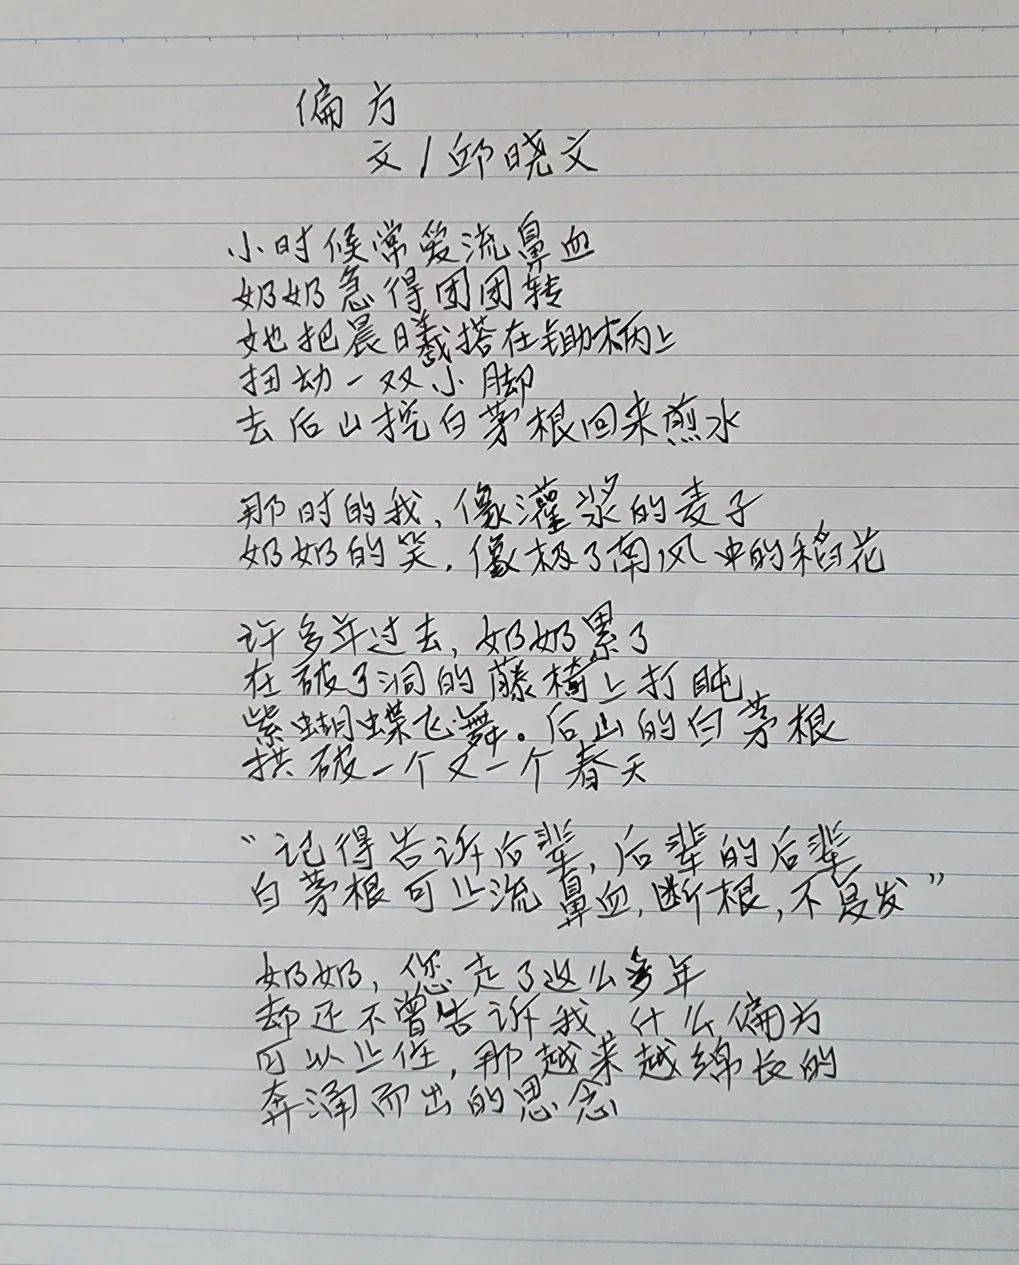 偏方
文/邱晓文
小时候常爱流鼻血
奶奶急得团团转
她把晨曦搭在锄柄上
扭动一双小脚
去后山挖白茅根回来煎水
那时的我,像灌浆的麦子
奶奶的笑,像极了南风中的稻花
许多年过去,奶奶累了
在破了洞的藤椅上打盹
紫蝴蝶飞舞。后山的白茅根
拱破一个又一个春天
“记得告诉后辈,后辈的后辈
白茅根可止流鼻血,断根,不复发”
奶奶,您走了这么多年
却还不曾告诉我,什么偏方
可以止住,那越来越绵长的
奔涌而出的思念